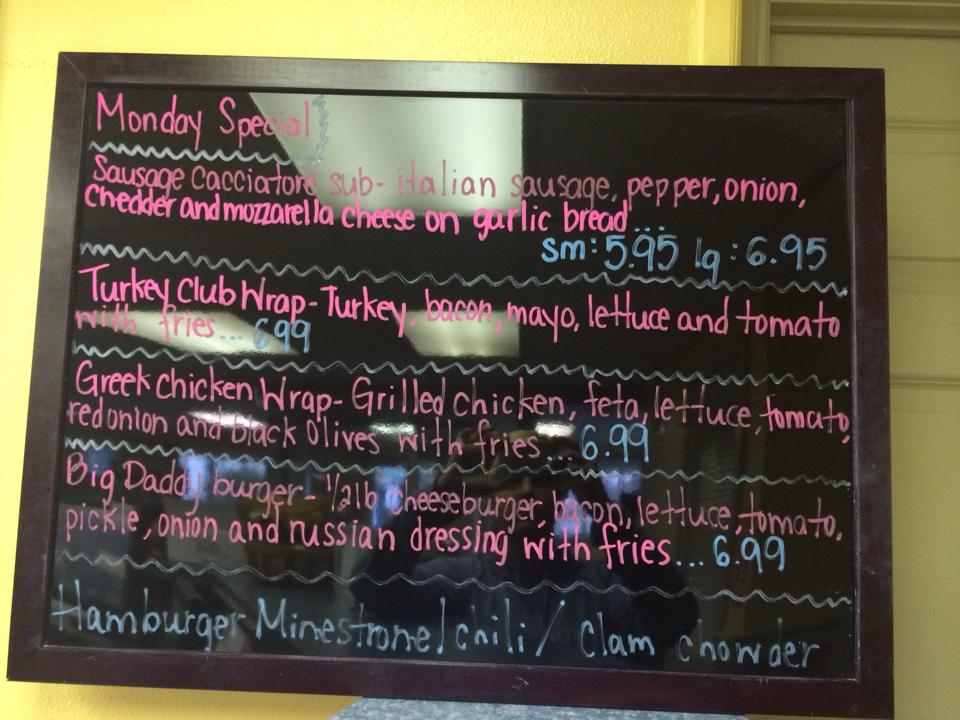 Monday Special
Sausage Cacciatore sub- italian sausage, pepper, onion,
Chedder and mozzarella cheese on garlic bread...
sm: 5.95 lg: 6.95
Turkey Club Wrap- Turkey, bacon, mayo, lettuce and tomato
with fries... 6 99
Greek chicken Wrap- Grilled chicken, feta, lettuce, tomato,
red onion and black olives with fries... 6.99
Big Daddy burger- 1/2 lb cheeseburger, bacon, lettuce, tomato,
pickle, onion and russian dressing with fries... 6.99
Hamburger Minestrone / chili / Clam chowder